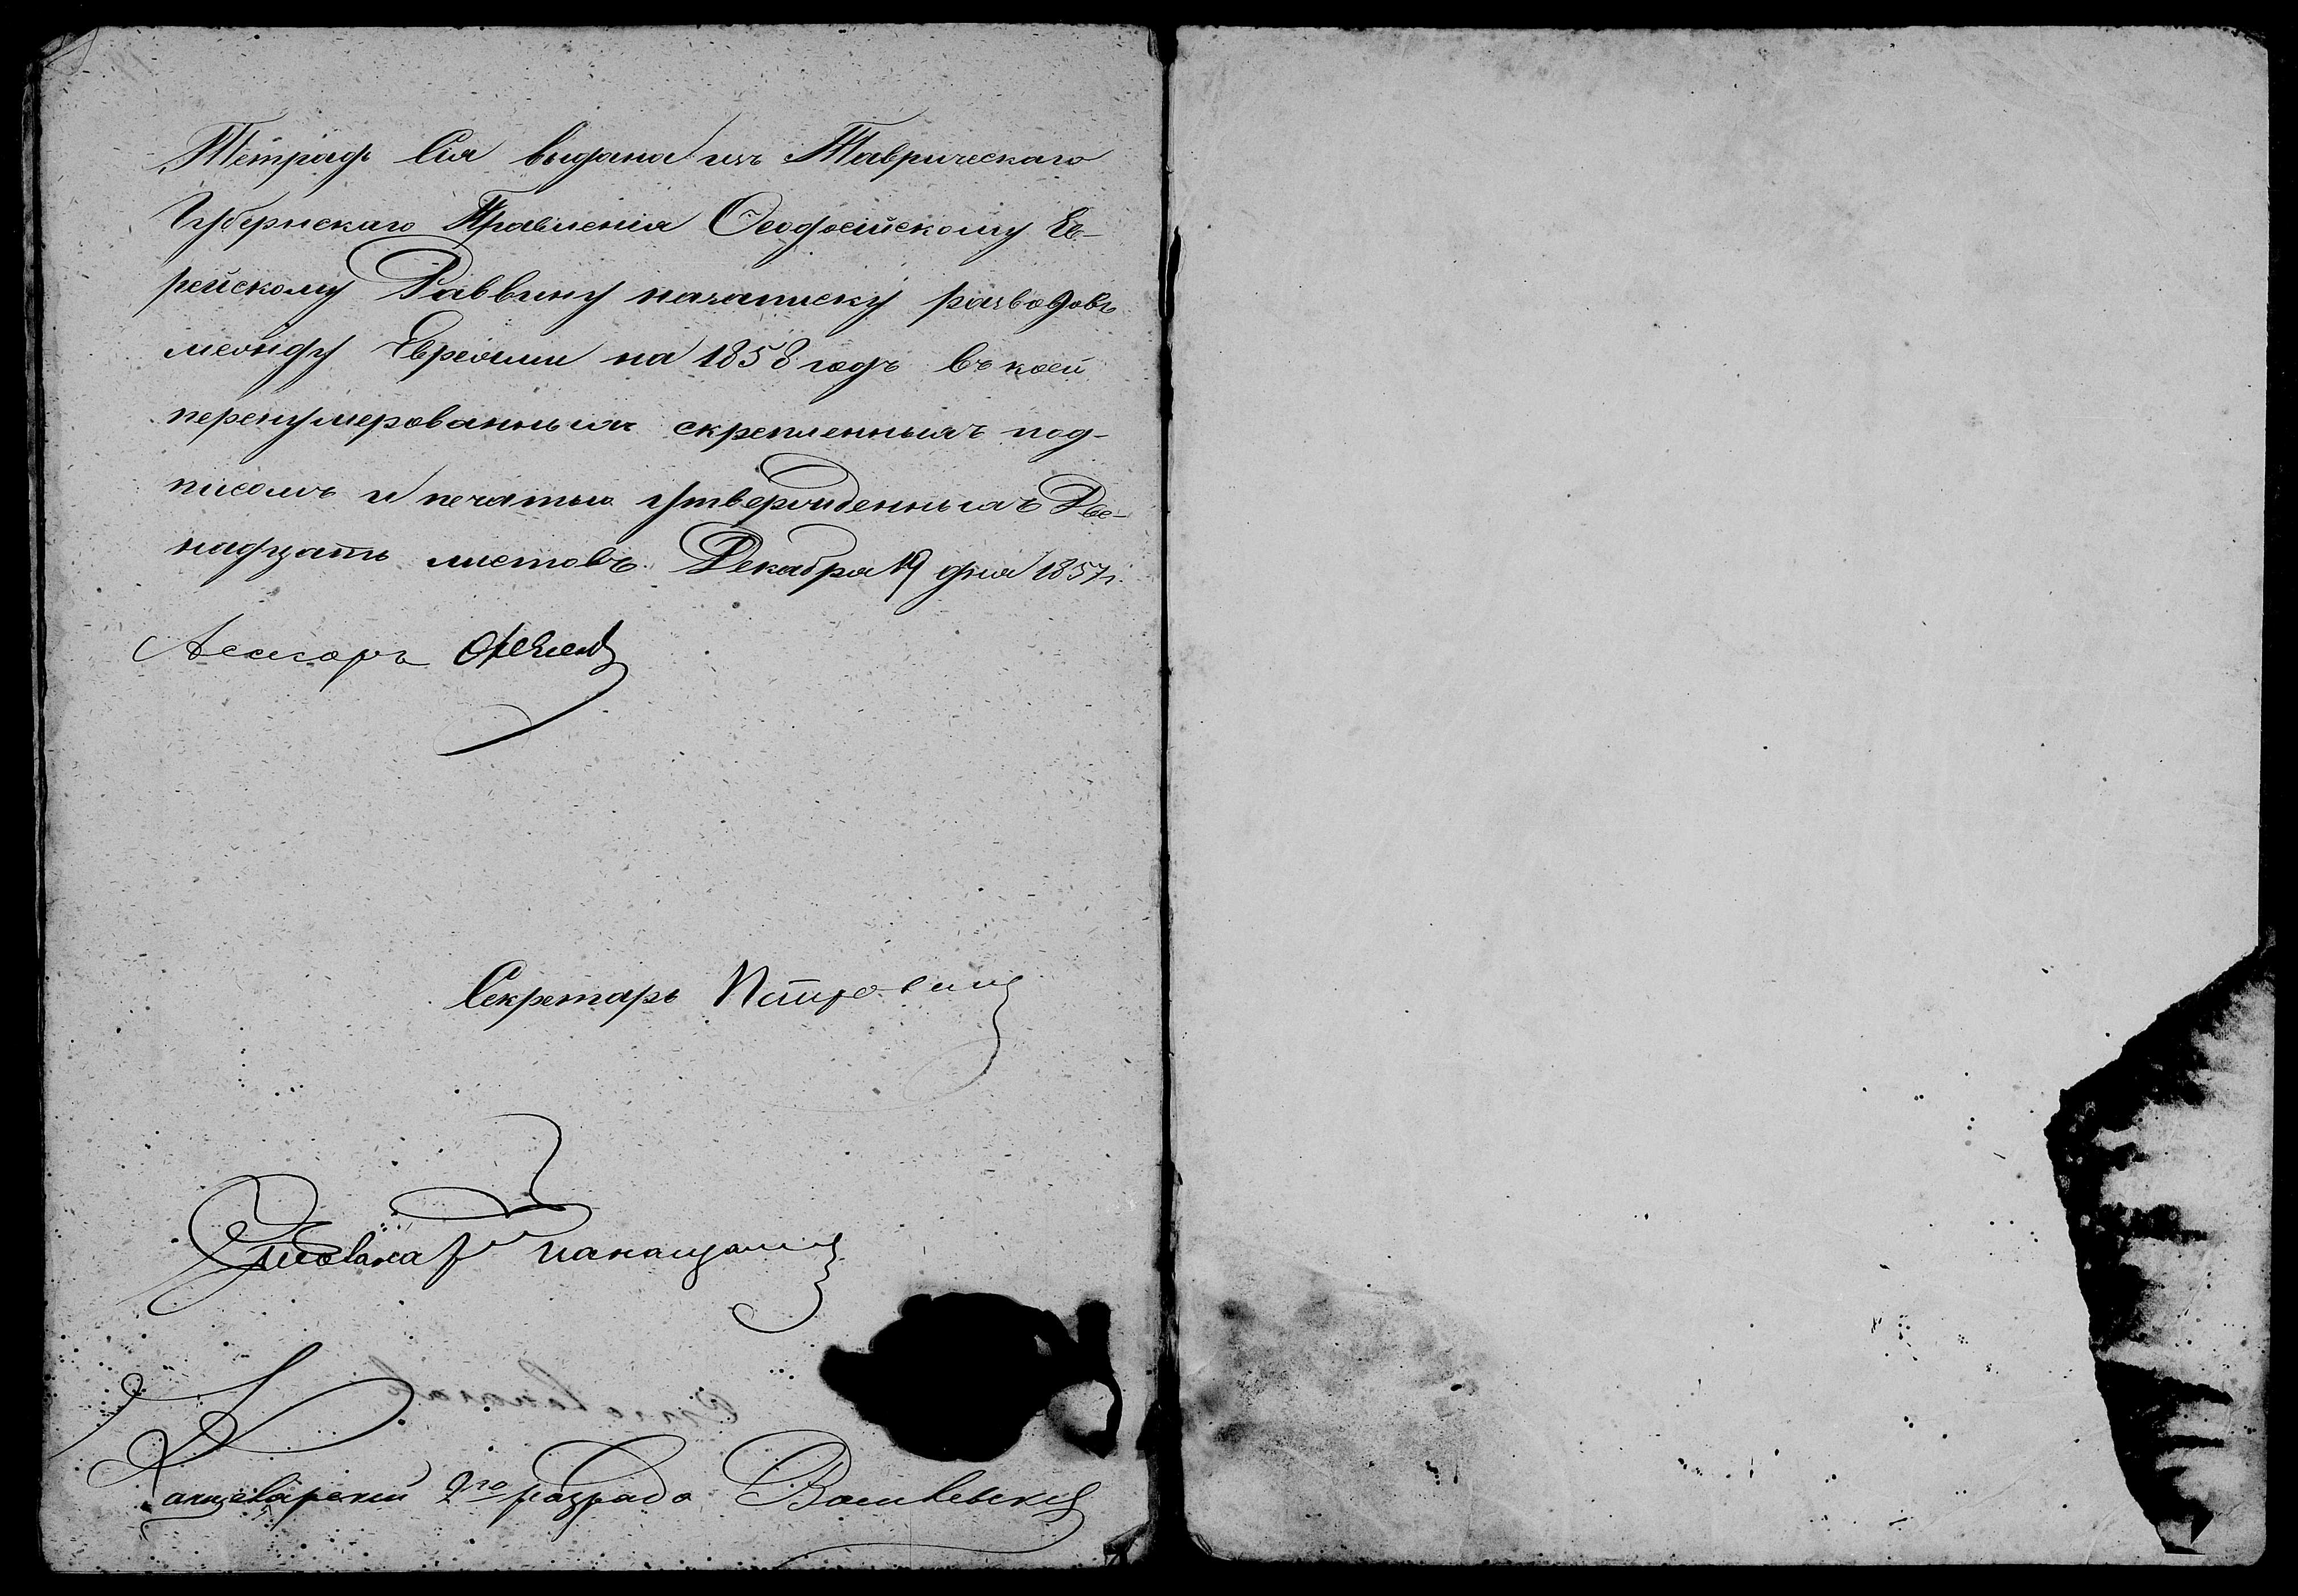 Тетрадь Сия выдана изъ Таврическаго
Губернскаго Правленія Ѳеодосійскому Ев-
рейскому Раввину назаписку разводовъ
между Евреями на 1858 годъ въ коей
перенумерованныхъ скрепленныхъ под-
писомъ и печатью утвержденныхъ Две-
надцать листовъ. Декабря 19 дня 1857 г.
Ассесоръ
Секретарь Петровичъ
Канцелярскій 2го разряда